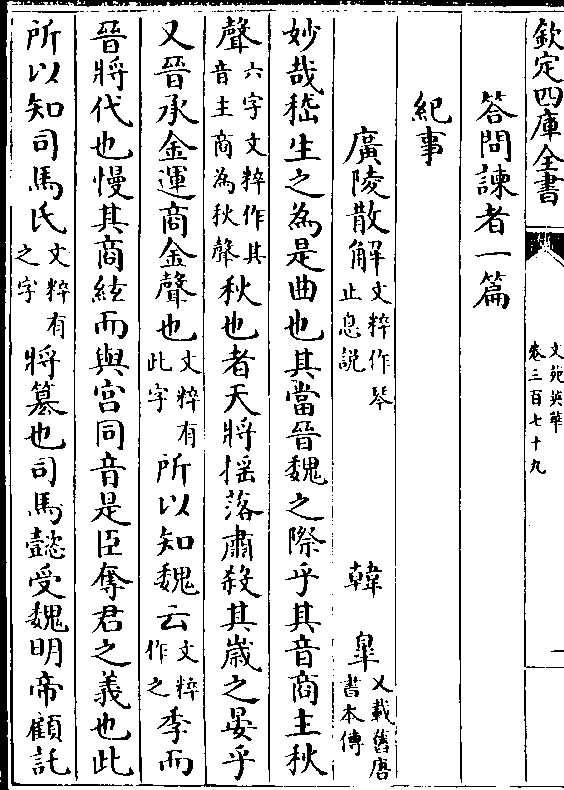 欽定四庫全書
文苑英華
卷三百七十九
一
答問諫者一篇
紀事
廣陵散解文粹作琴止息説 韓臯又載舊唐書本傳
妙哉嵇生之為是曲也其當晉魏之際乎其音商主秋
聲六字文粹作其音主商為秋聲秋也者天將揺落肅殺其歳之晏乎
又晉承金運商金聲也文粹有此字所以知魏云文粹作之季而
晉將代也慢其商絃而與宫同音是臣奪君之義也此
所以知司馬氏文粹有之字將簒也司馬懿受魏明帝顧託